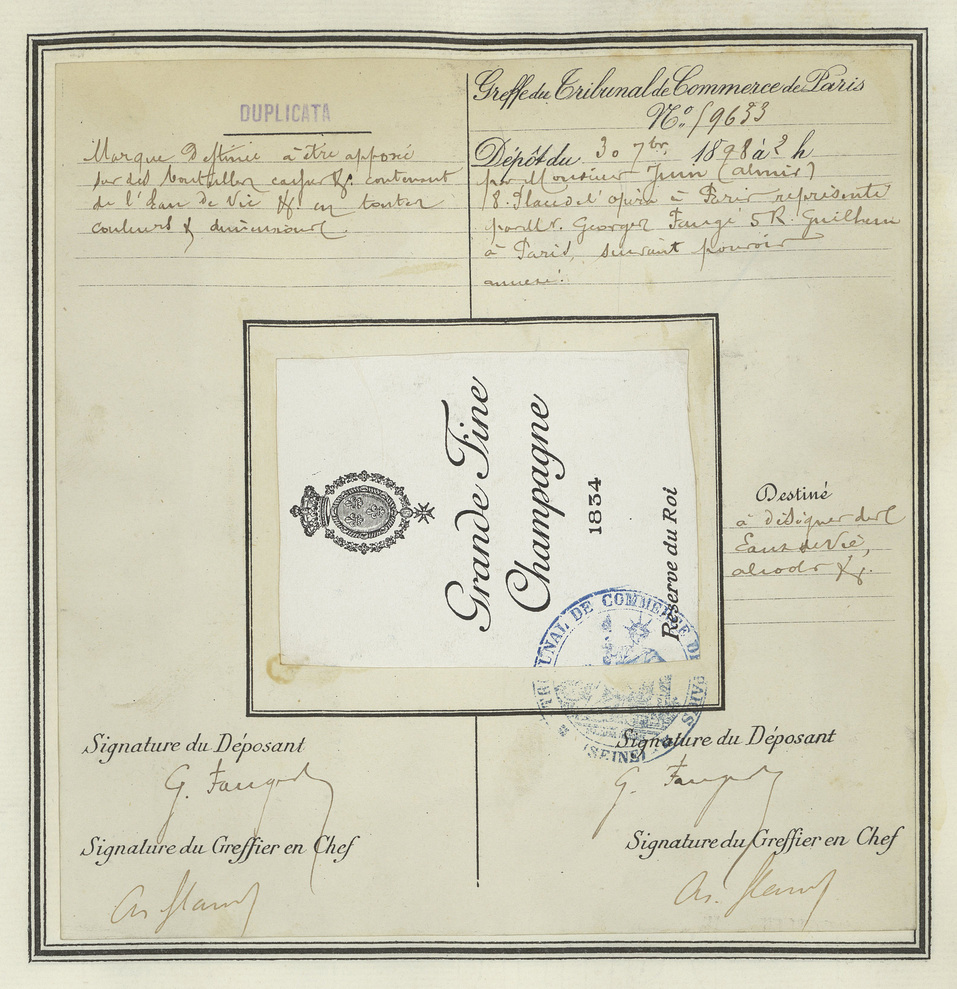 DUPLICATA
Marque Destinée à être apposé
sur des bouteilles caisses &. contenant
de l'Eau de Vie &. en toutes
couleurs & dimensions.
Greffe du Tribunal de Commerce de Paris
N° 59633
Dépôt du 30 7bre 1898 à 2 h
par Monsieur (Almir)
8. Place de l'opéra à Paris représenté
par Mr. Georges Faugé 5 R. Guilhem
à Paris, suivant pouvoir
annexé.
Grande Fine
Champagne
1834
Réserve du Roi
TRIBUNAL DE COMMERCE DE PARIS
(SEINE)
Destiné
à désigner des
Eaux de Vie,
alcools &.
Signature du Déposant
Signature du Greffier en Chef
Signature du Déposant
Signature du Greffier en Chef